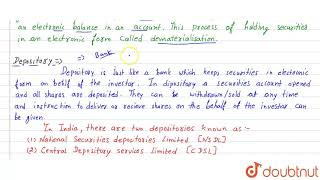 an electronic balance in an account. This process of holding securities
in an electronic form called dematerialisation.
Depository ⇒ ⇒ Bank
Depositary is Just like a bank which keeps securities in electronic
form on behlf of the investor. In dipository a securities account opened
and all shares are deposited. They can be withdrawn/sold at any time
and instruction to deliver or recieve shares on the behalf of the investor can
be given.
In India, there are two depositories known as :-
(1) National Securities depositories limited [NSDL]
(2) Central Depository services limited [CDSL]
doubtnut